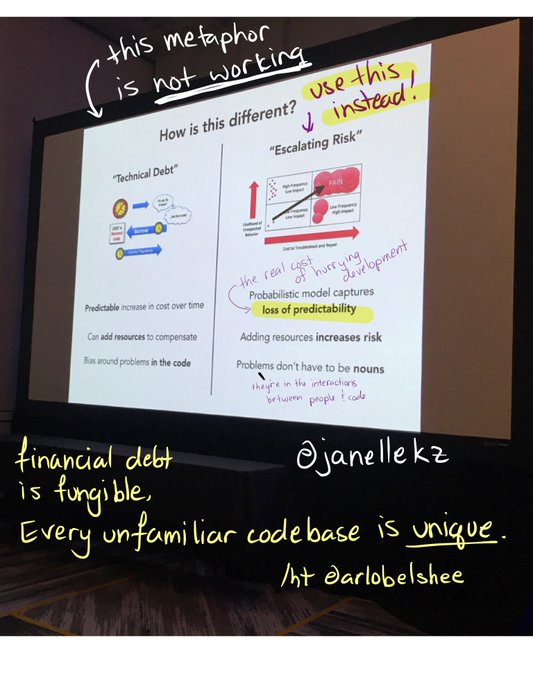 this metaphor
is not working
use this
instead!
How is this different?
"Technical Debt"
Borrow
Predictable increase in cost over time
Can add resources to compensate
Bias around problems in the code
"Escalating Risk"
High Frequency
Low Impact
PAIN
Low Frequency
High Impact
Likelihood of
Unexpected
Behavior
Cost to Troubleshoot and Repair
the real cost
of hurrying
development
Probabilistic model captures
loss of predictability
Adding resources increases risk
Problems don't have to be nouns
they're in the interactions
between people & code
@janellekz
financial debt
is fungible,
Every unfamiliar codebase is unique.
/ht @arlobelshee